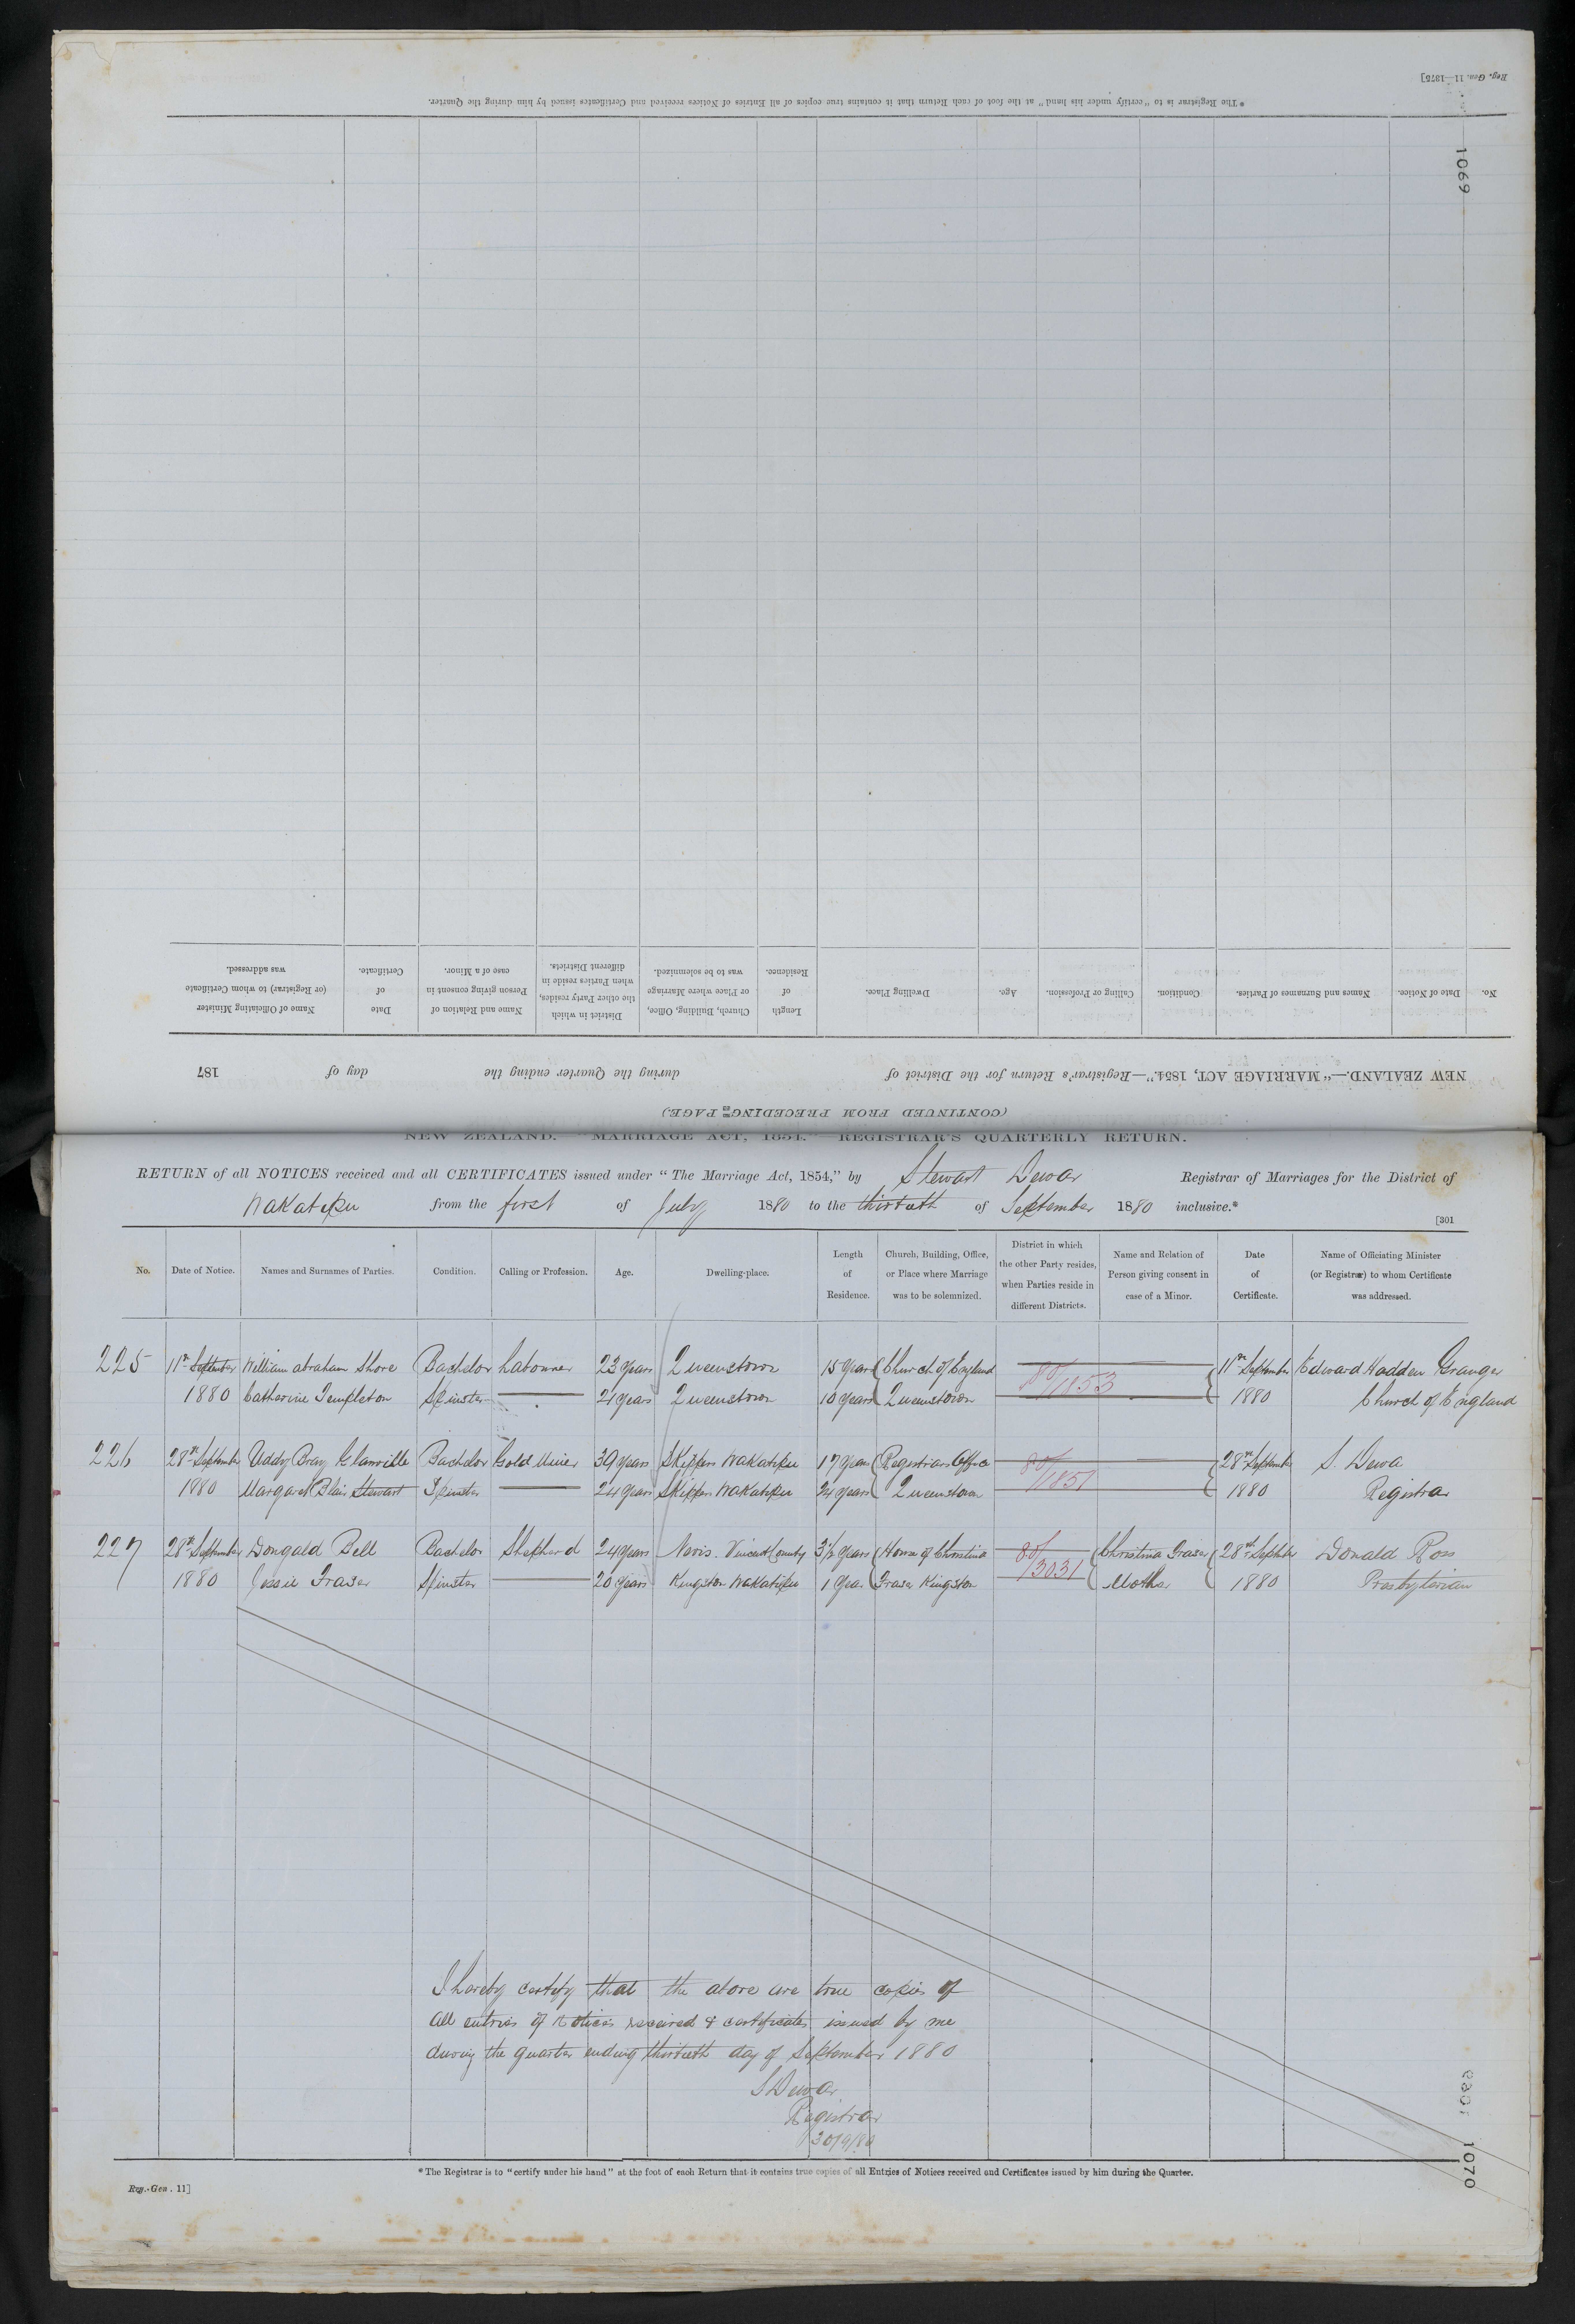 Reg. Gen. 11—1875]
* The Registrar is to "certify under his hand" at the foot of each Return that it contains true copies of all Entries of Notices received and Certificates issued by him during the Quarter.
1069
No. Date of Notice. Names and Surnames of Parties. Condition. Calling or Profession. Age. Dwelling Place. Length of Residence. Church, Building, Office, or Place where Marriage was to be solemnized. District in which the other Party resides, when Parties reside in different Districts. Name and Relation of Person giving consent in case of a Minor. Date of Certificate. Name of Officiating Minister (or Registrar) to whom Certificate was addressed.
NEW ZEALAND.—"MARRIAGE ACT, 1854."—Registrar's Return for the District of during the Quarter ending the day of 187
(CONTINUED FROM PRECEDING PAGE.)
NEW ZEALAND.—"MARRIAGE ACT, 1854."—REGISTRAR'S QUARTERLY RETURN.
RETURN of all NOTICES received and all CERTIFICATES issued under "The Marriage Act, 1854," by Stewart Dewar Registrar of Marriages for the District of
Wakatipu from the first of July 1880 to the thirtieth of September 1880 inclusive.*
[301
No. Date of Notice. Names and Surnames of Parties. Condition. Calling or Profession. Age. Dwelling-place. Length of Residence. Church, Building, Office, or Place where Marriage was to be solemnized. District in which the other Party resides, when Parties reside in different Districts. Name and Relation of Person giving consent in case of a Minor. Date of Certificate. Name of Officiating Minister (or Registrar) to whom Certificate was addressed.
225 11th September William Abraham Shore Bachelor Labourer 23 years Queenstown 15 years Church of England 80/1853 11th September Edward Hadden Granger
1880 Catherine Templeton Spinster 21 years Queenstown 10 years Queenstown 1880 Church of England
226 28th September Uddy Bray Glanville Bachelor Gold Miner 39 years Skippers Wakatipu 17 years Registrars Office 80/1851 28th September S. Dewar
1880 Margaret Blair Stewart Spinster 24 years Skippers Wakatipu 24 years Queenstown 1880 Registrar
227 28th September Dongald Bell Bachelor Shepherd 24 years Nevis. Vincent County 3½ years House of Christina 80/3031 Christina Fraser 28th Septber Donald Ross
1880 Jessie Fraser Spinster 20 years Kingston Wakatipu 1 year Fraser Kingston Mother 1880 Presbyterian
I hereby certify that the above are true copies of
all entries of notices received & certificates issued by me
during the quarter ending thirtieth day of September 1880
S Dewar
Registrar
30/9/80
1070
* The Registrar is to "certify under his hand" at the foot of each Return that it contains true copies of all Entries of Notices received and Certificates issued by him during the Quarter.
Reg.-Gen. 11]